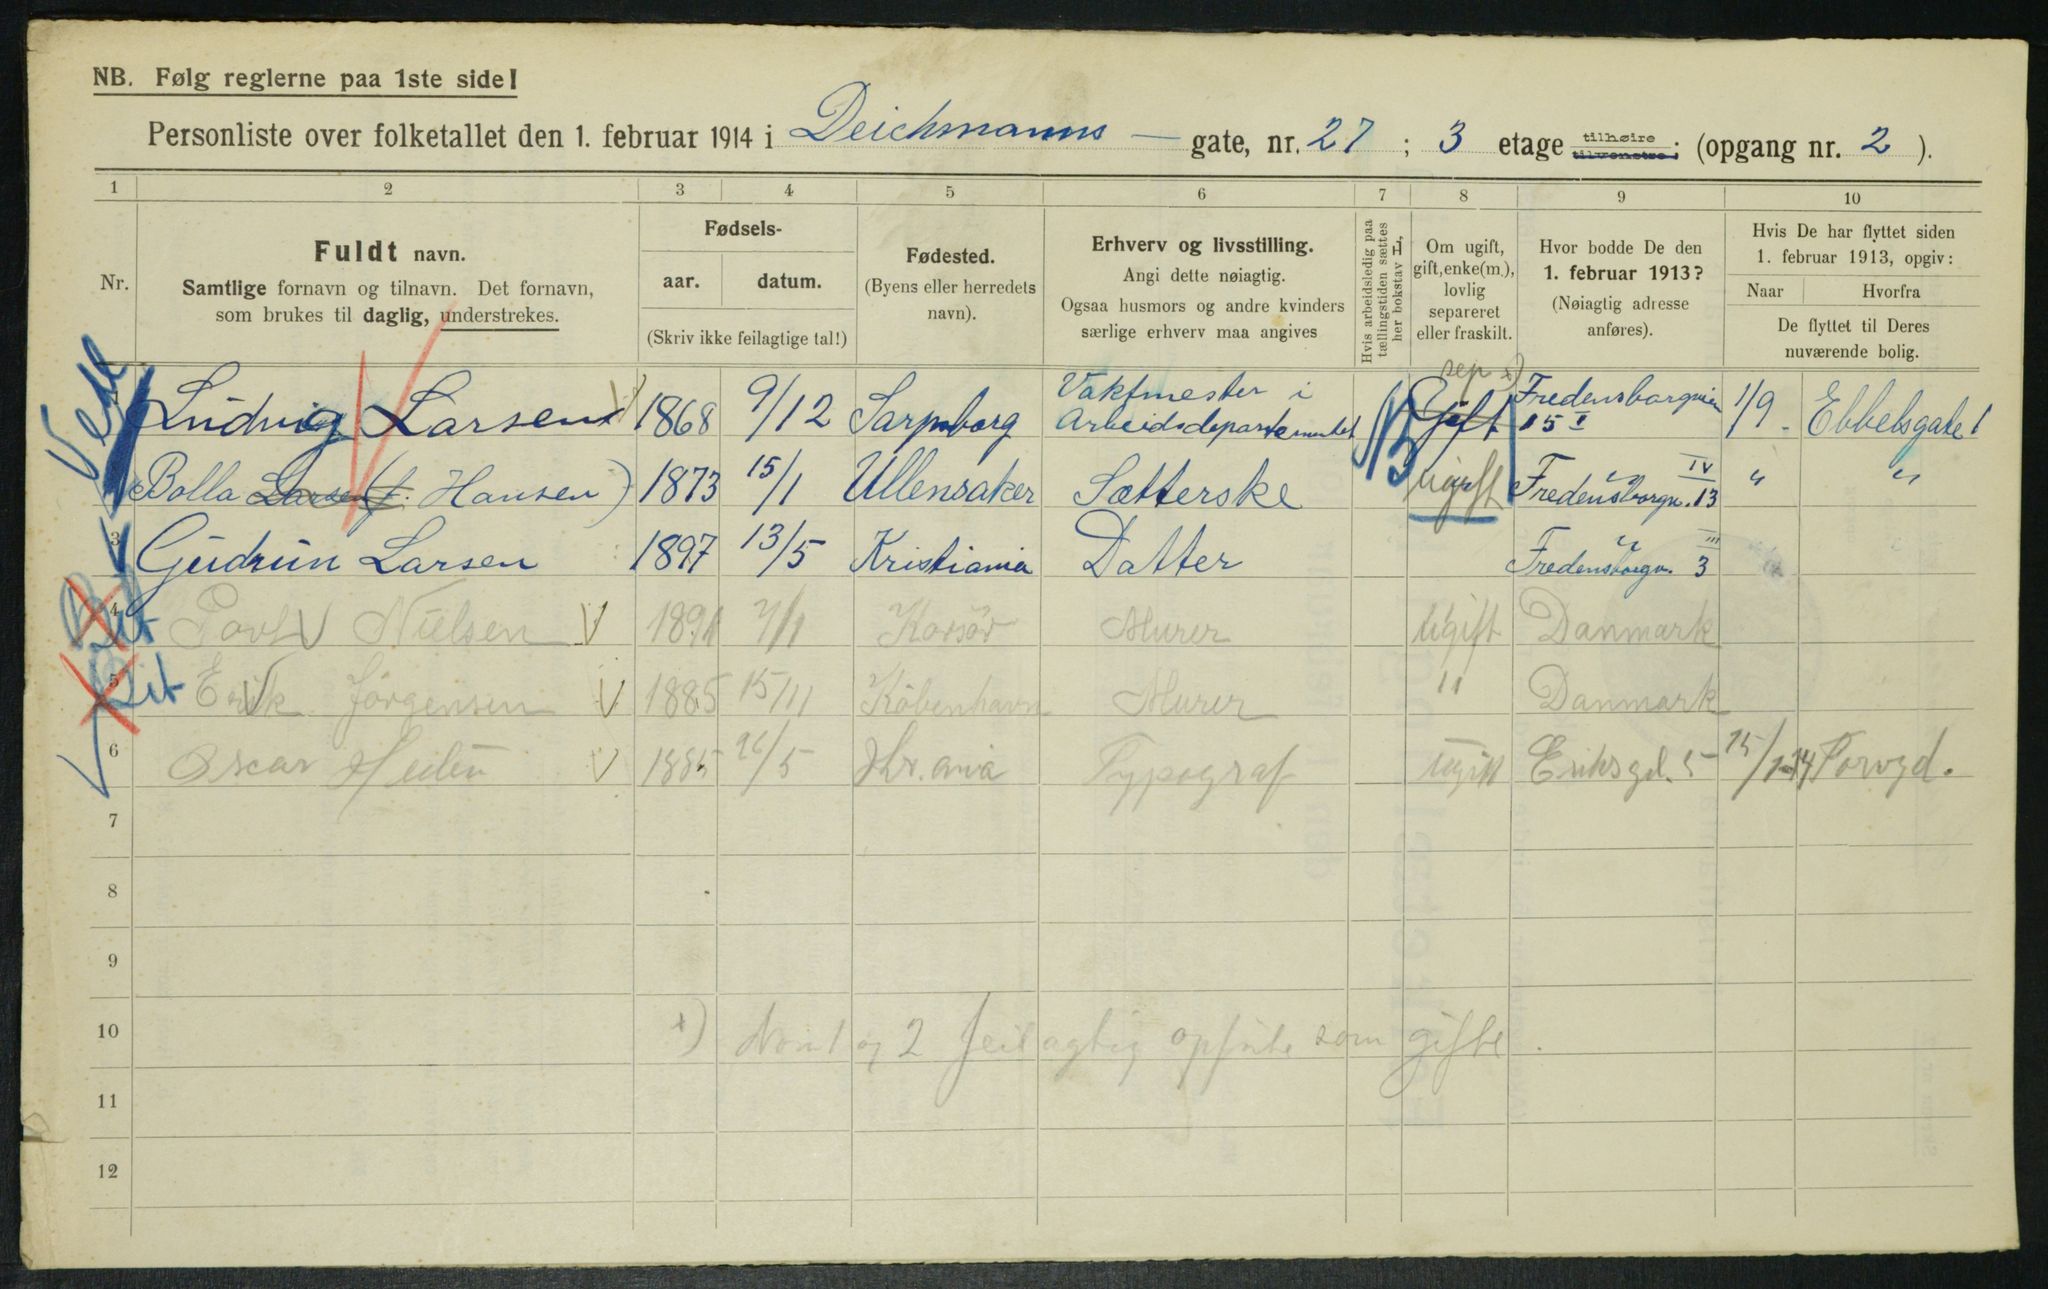 NB. Følg reglerne paa 1ste side!
Personliste over folketallet den 1. februar 1914 i Deichmanns — gate, nr. 27 ; 3 etage tilhøire tilvenstre; (opgang nr. 2 ).
1 2 3 4 5 6 7 8 9 10
Nr.
Fuldt navn.
Samtlige fornavn og tilnavn. Det fornavn,
som brukes til daglig, understrekes.
Fødsels-
aar. datum.
(Skriv ikke feilagtige tal!)
Fødested.
(Byens eller herredets
navn).
Erhverv og livsstilling.
Angi dette nøiagtig.
Ogsaa husmors og andre kvinders
særlige erhverv maa angives
Hvis arbeidsledig paa
tællingstiden sættes
her bokstav H,
Om ugift,
gift, enke(m.),
lovlig
separeret
eller fraskilt.
Hvor bodde De den
1. februar 1913?
(Nøiagtig adresse
anføres).
Hvis De har flyttet siden
1. februar 1913, opgiv:
Naar Hvorfra
De flyttet til Deres
nuværende bolig.
1 Ludvig Larsen 1868 9/12 Sarpsborg Vaktmester i Arbeidsdepartementet Gift sep x) Fredensborgveien 15 I 1/9 - Ebbelsgate 1
Bolla Larsen (f. Hansen) 1873 15/1 Ullensaker Sætterske ugift " Fredensborgv. 13 IV " "
3 Gudrun Larsen 1897 13/5 Kristiania Datter " Fredensborgv. 3 III
4 Povl Nielsen V 1891 7/1 Korsör Murer Ugift Danmark
5 Erik Jörgensen V 1885 15/11 Köbenhavn Murer " Danmark
6 Oscar Heden V 1885 26/5 Kr.ania Typograf ugift Eriksgd. 5 15/1-14 Torvgd.
7
8
9
10 x) No 1 og 2 feilagtig opførte som gifte.
11
12